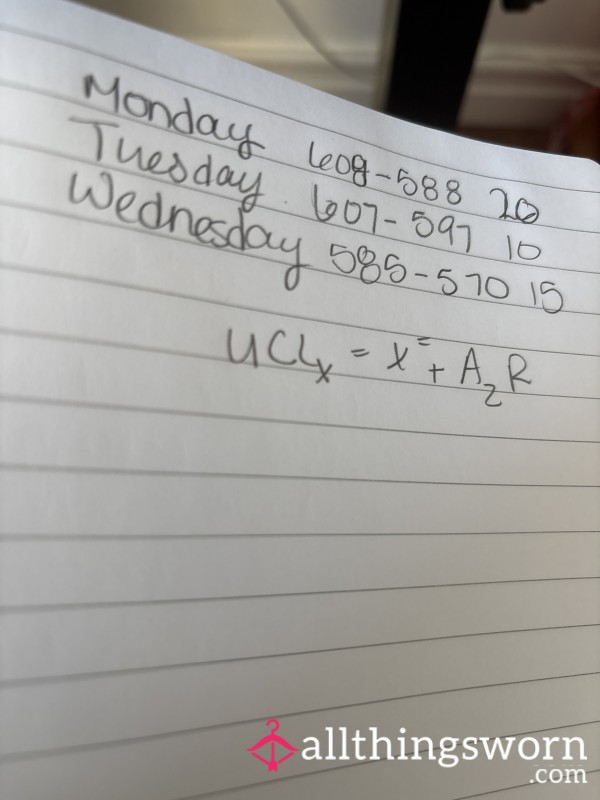 Monday 608-588 20
Tuesday. 607-597 10
Wednesday 585-570 15
UCLx = x̿ + A₂R
allthingsworn
.com